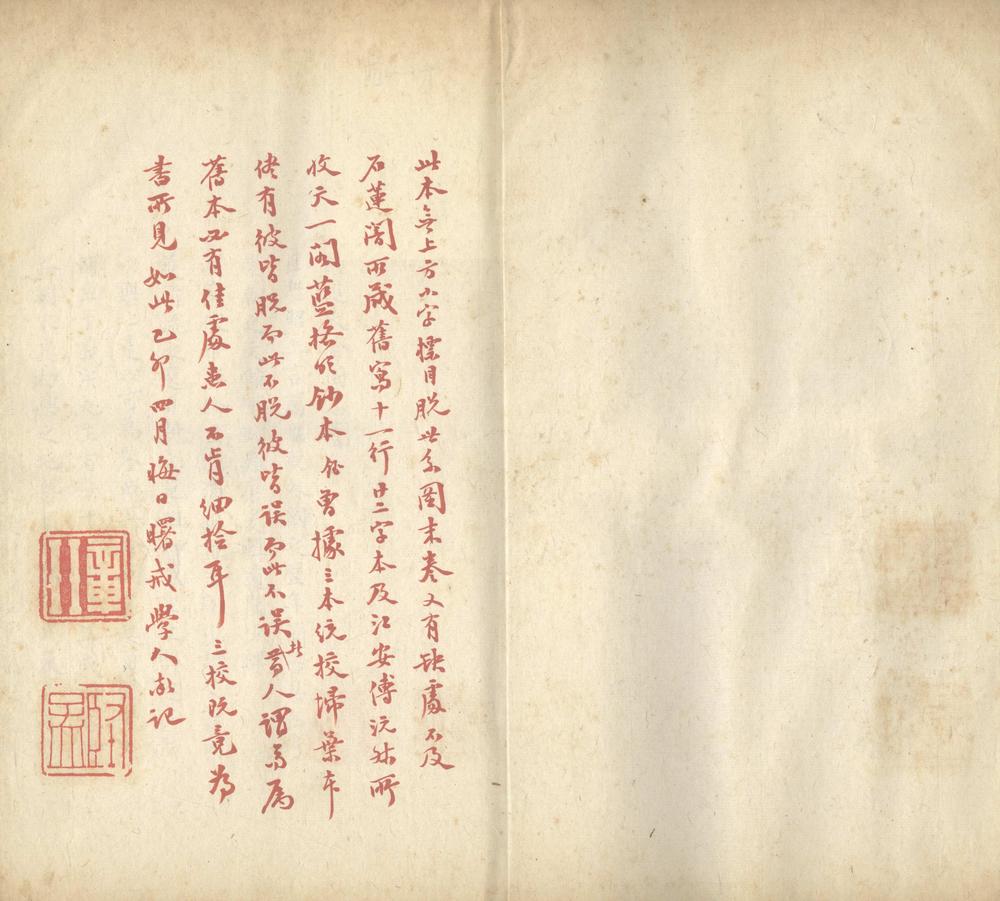 此本無上方小字標目脫世系圖末卷又有缺處不及
石蓮闇所藏舊寫十一行廿二字本及江安傅沅叔所
收天一閣藍格明鈔本然曾據三本統校掃葉本
儘有彼皆脫而此不脫彼皆誤而此不誤昔人謂多屬
此
舊本必有佳處患人不肯細檢耳三校既竟為
書所見如此乙卯四月晦日曙戒學人敬記
章